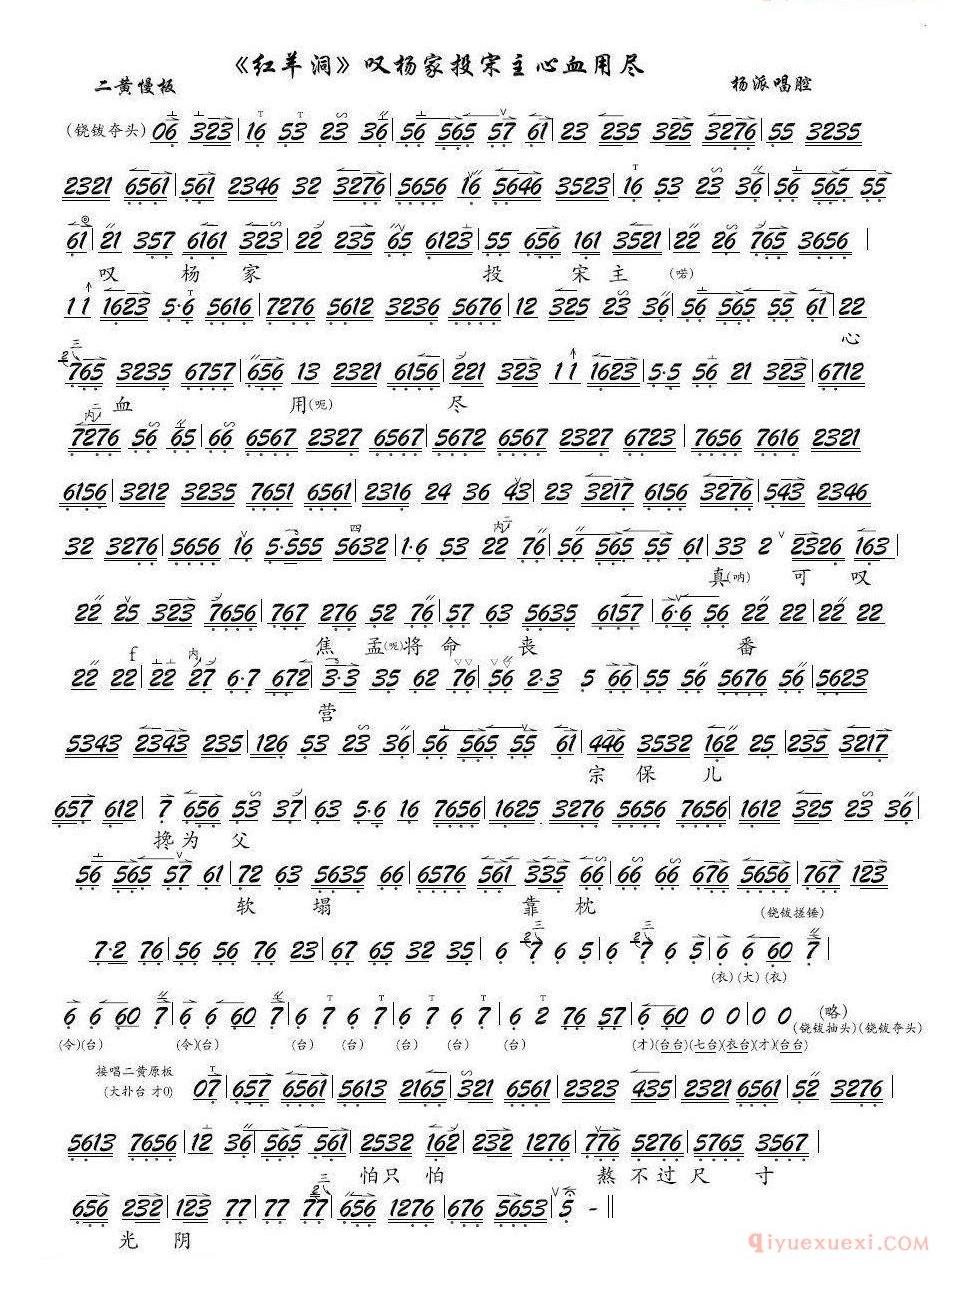 《红羊洞》叹杨家投宋主心血用尽
二黄慢板
杨派唱腔
(铙钹夺头) 06 323 | 16 53 23 36 | 56 565 57 61 | 23 235 325 3276 | 55 3235
2321 6561 | 561 2346 32 3276 | 5656 16 5646 3523 | 16 53 23 36 | 56 565 55
61 | 21 357 6161 323 | 22 235 65 6123 | 55 656 161 3521 | 22 26 765 3656 |
叹 杨 家 投 宋 主 (喏)
1 1 1623 5·6 5616 | 7276 5612 3236 5676 | 12 325 23 36 | 56 565 55 61 | 22
心
765 3235 6757 | 656 13 2321 6156 | 221 323 1 1 1623 | 5·5 56 21 323 | 6712
血 用(呃) 尽
7276 56 65 | 66 6567 2327 6567 | 5672 6567 2327 6723 | 7656 7616 2321
6156 | 3212 3235 7651 6561 | 2316 24 36 43 | 23 3217 6156 3276 | 543 2346
32 3276 | 5656 16 5·555 5632 | 1·6 53 22 76 | 56 565 55 61 | 33 2 2326 163 |
真(呐) 可 叹
22 25 323 7656 | 767 276 52 76 | 57 63 5635 6157 | 6·6 56 22 22 | 22 22
焦 孟(呃)将 命 丧 番
22 22 | 22 27 6·7 672 | 3·3 35 62 76 | 56 2·3 5 66 | 55 56 5676 56 | 5623
营
5343 2343 235 | 126 53 23 36 | 56 565 55 61 | 446 3532 162 25 | 235 3217
宗 保 儿
657 612 | 7 656 53 37 | 63 5·6 16 7656 | 1625 3276 5656 7656 | 1612 325 23 36 |
搀 为 父
56 565 57 61 | 72 63 5635 66 | 6576 561 335 66 | 66 66 676 5656 | 767 123
软 塌 靠 枕
(铙钹搓锤)
7·2 76 | 56 56 76 23 | 67 65 32 35 | 6 7 6 5 | 6 7 6 5 | 6 6 60 7 |
(衣)(大)(衣)
6 6 60 7 | 6 6 60 7 | 6 7 6 7 | 6 7 6 7 | 6 2 76 57 | 6 60 0 0 | 0 0 (略)
(令)(台) (令)(台) (台) (台) (台) (台) (台) (才)(台台)(七台)(衣台)(才)(台台) (铙钹抽头)(铙钹夺头)
接唱二黄原板
(大扑台 才0) 07 | 657 6561 | 5613 2165 | 321 6561 | 2323 435 | 2321 6561 | 52 3276 |
5613 7656 | 12 36 | 565 561 | 2532 162 | 232 1276 | 776 5276 | 5765 3567 |
怕只 怕 熬 不 过 尺 寸
656 232 | 123 77 | 77 77 | 656 1276 | 676 5653 | 5 - ‖
光 阴
qiyuexuexi.COM